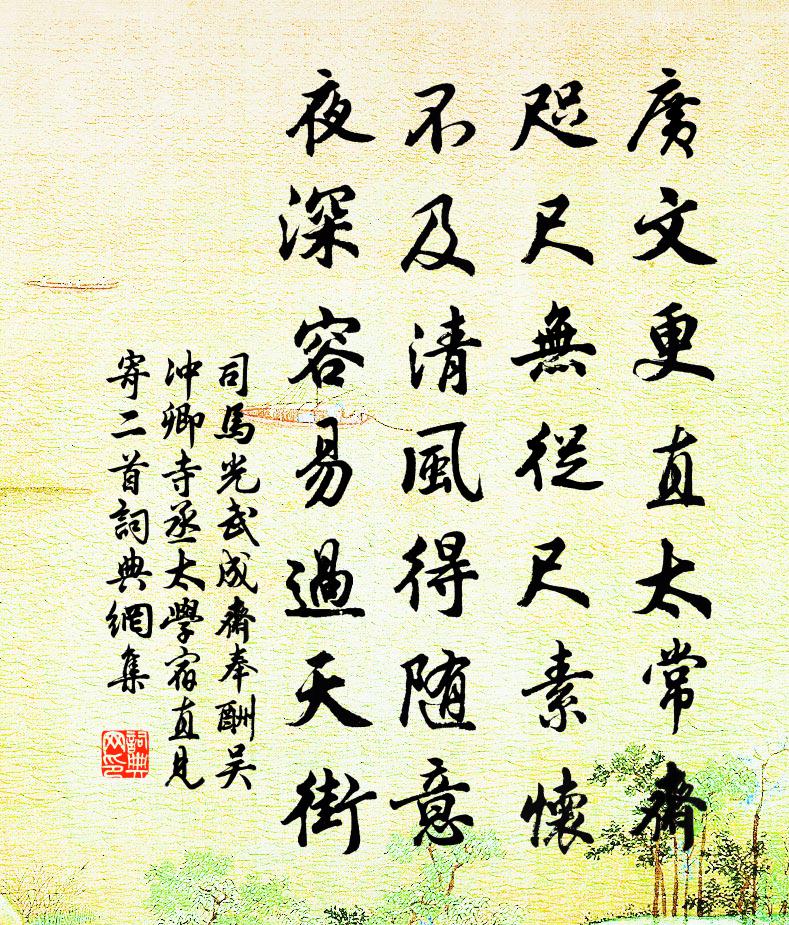 廣文更直太常齋
咫尺無從尺素懷
不及清風得随意
夜深容易過天街
司馬光武成齋奉酬吳
冲卿寺丞太學宿直見
寄二首詞典網集
詞典
网印